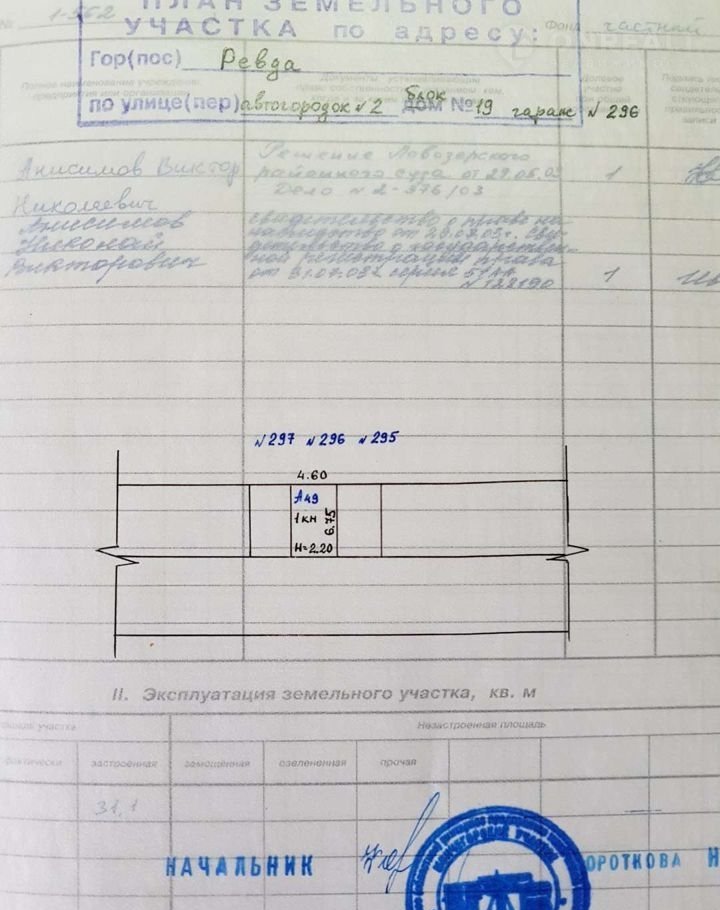 № 1-562
ПЛАН ЗЕМЕЛЬНОГО
УЧАСТКА по адресу:
Фонд частный
Гор(пос) Ревда
по улице(пер) автогородок №2 блок дом № 19 гараж № 296
Полное наименование учреждения,
предприятия или организации
Документы, устанавливающие
Долевое
участие
Подпись
свидетель
ствующего
правильность
записи
Анисимов Виктор
Николаевич
Решение Ловозерского
районного суда от 29.06.03
Дело №2-376/03
1
Анисимов
Николай
Викторович
свидетельство о праве на
наследство от 20.02.03г. сви-
детельство о государствен-
ной регистрации права
от 31.07.03г серия 51 АА
№ 122190
1
№297 №296 №295
4.60
А49
1кн
6.75
H=2.20
II. Эксплуатация земельного участка, кв. м
участка
Незастроенная площадь
фактически
застроенная
замощённая
озелененная
прочая
31,1
НАЧАЛЬНИК
ОРОТКОВА Н